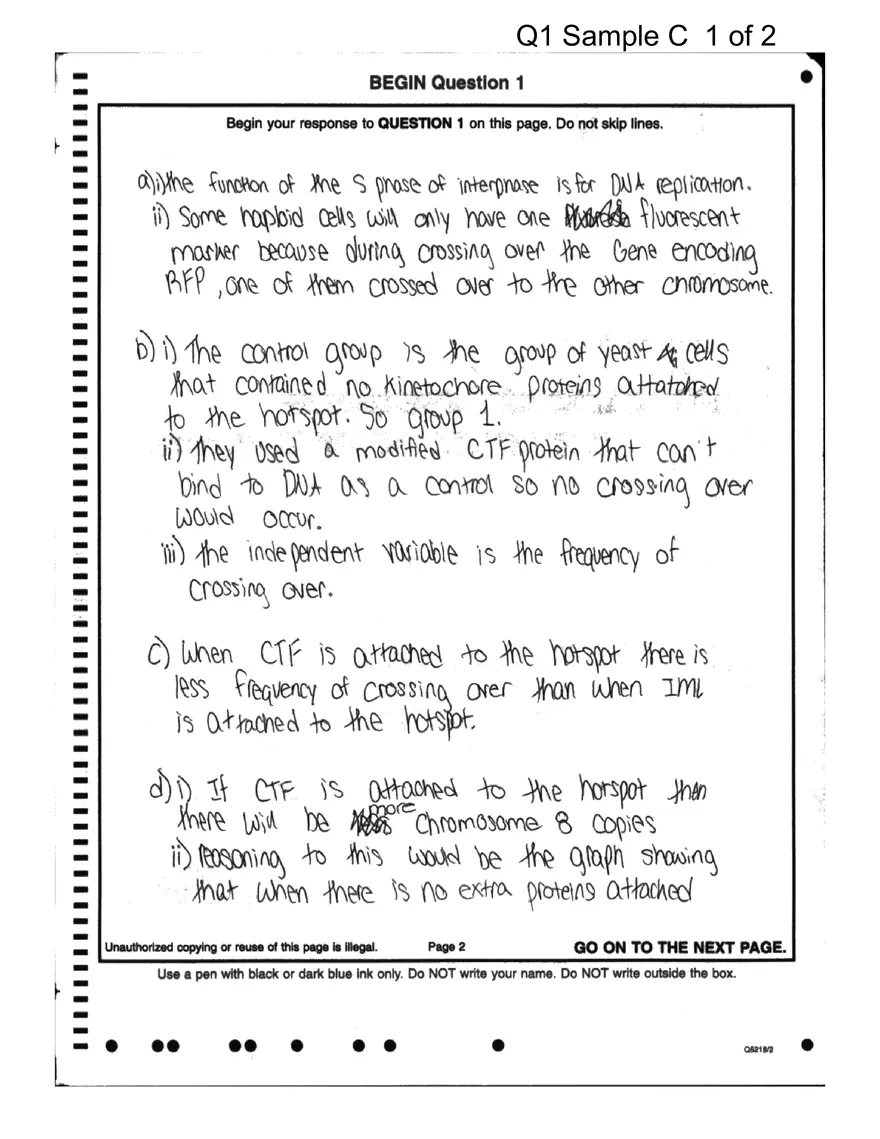 Q1 Sample C 1 of 2
BEGIN Question 1
Begin your response to QUESTION 1 on this page. Do not skip lines.
a) i) the function of the S phase of interphase is for DNA replication.
ii) Some haploid cells will only have one fluorescent
marker because during crossing over the Gene encoding
RFP, one of them crossed over to the other chromosome.
b) i) The control group is the group of yeast cells
that contained no kinetochore proteins attatched
to the hotspot. So group 1.
ii) They used a modified CTF protein that can't
bind to DNA as a control so no crossing over
would occur.
iii) the independent variable is the frequency of
crossing over.
c) When CTF is attached to the hotspot there is
less frequency of crossing over than when IML
is attached to the hotspot.
d) i) If CTF is attached to the hotspot then
there will be more chromosome 8 copies
ii) reasoning to this would be the graph showing
that when there is no extra proteins attached
Unauthorized copying or reuse of this page is illegal. Page 2 GO ON TO THE NEXT PAGE.
Use a pen with black or dark blue ink only. Do NOT write your name. Do NOT write outside the box.
Q5218/2